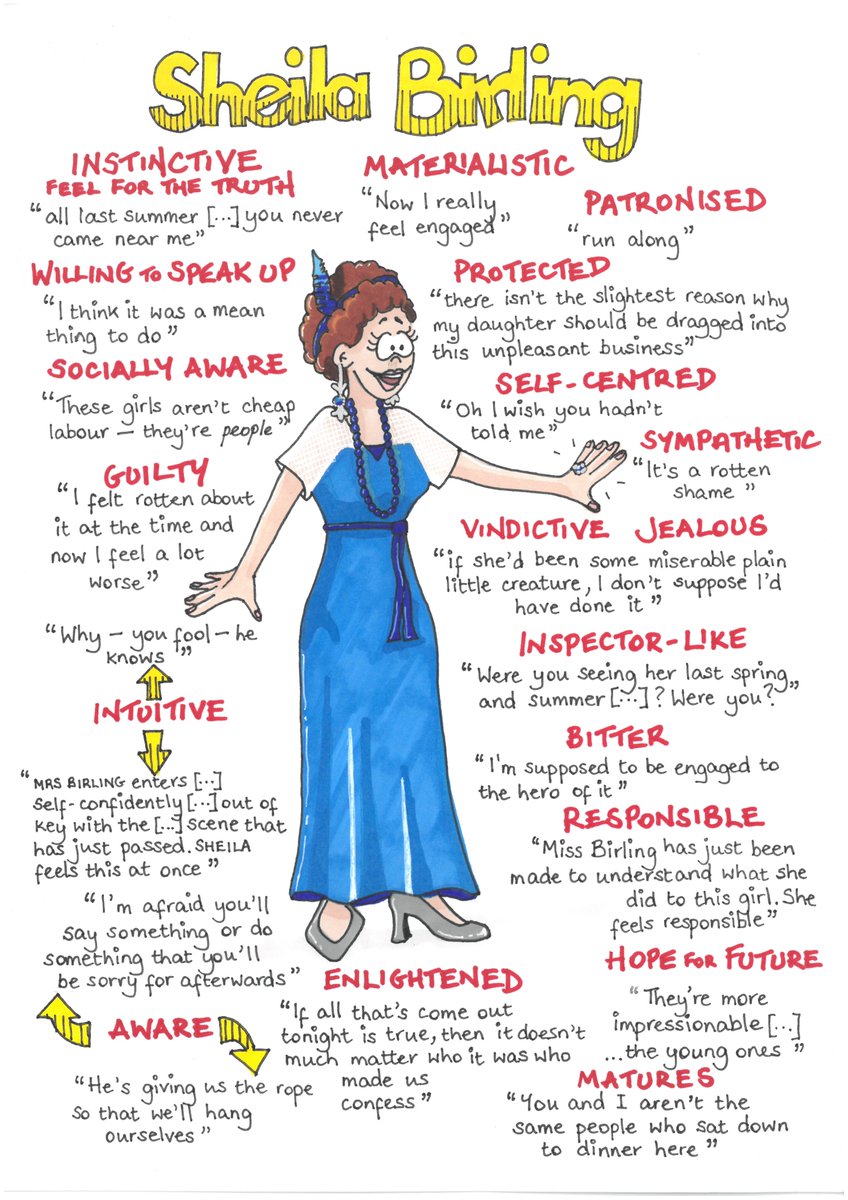 Sheila Birling
INSTINCTIVE
FEEL FOR THE TRUTH
"all last summer [...] you never
came near me"
MATERIALISTIC
"Now I really
feel engaged"
PATRONISED
"run along"
WILLING TO SPEAK UP
"I think it was a mean
thing to do"
PROTECTED
"there isn't the slightest reason why
my daughter should be dragged into
this unpleasant business"
SOCIALLY AWARE
"These girls aren't cheap
labour – they're people"
SELF-CENTRED
"Oh I wish you hadn't
told me"
SYMPATHETIC
"It's a rotten
shame"
GUILTY
"I felt rotten about
it at the time and
now I feel a lot
worse"
VINDICTIVE JEALOUS
"if she'd been some miserable plain
little creature, I don't suppose I'd
have done it"
"Why – you fool – he
knows"
INTUITIVE
"MRS BIRLING enters [...]
self-confidently [...] out of
key with the [...] scene that
has just passed. SHEILA
feels this at once"
INSPECTOR-LIKE
"Were you seeing her last spring
and summer [...]? Were you?"
BITTER
"I'm supposed to be engaged to
the hero of it"
RESPONSIBLE
"Miss Birling has just been
made to understand what she
did to this girl. She
feels responsible"
"I'm afraid you'll
say something or do
something that you'll
be sorry for afterwards"
AWARE
"He's giving us the rope
so that we'll hang
ourselves"
ENLIGHTENED
"If all that's come out
tonight is true, then it doesn't
much matter who it was who
made us
confess"
HOPE FOR FUTURE
"They're more
impressionable [...]
...the young ones"
MATURES
"You and I aren't the
same people who sat down
to dinner here"